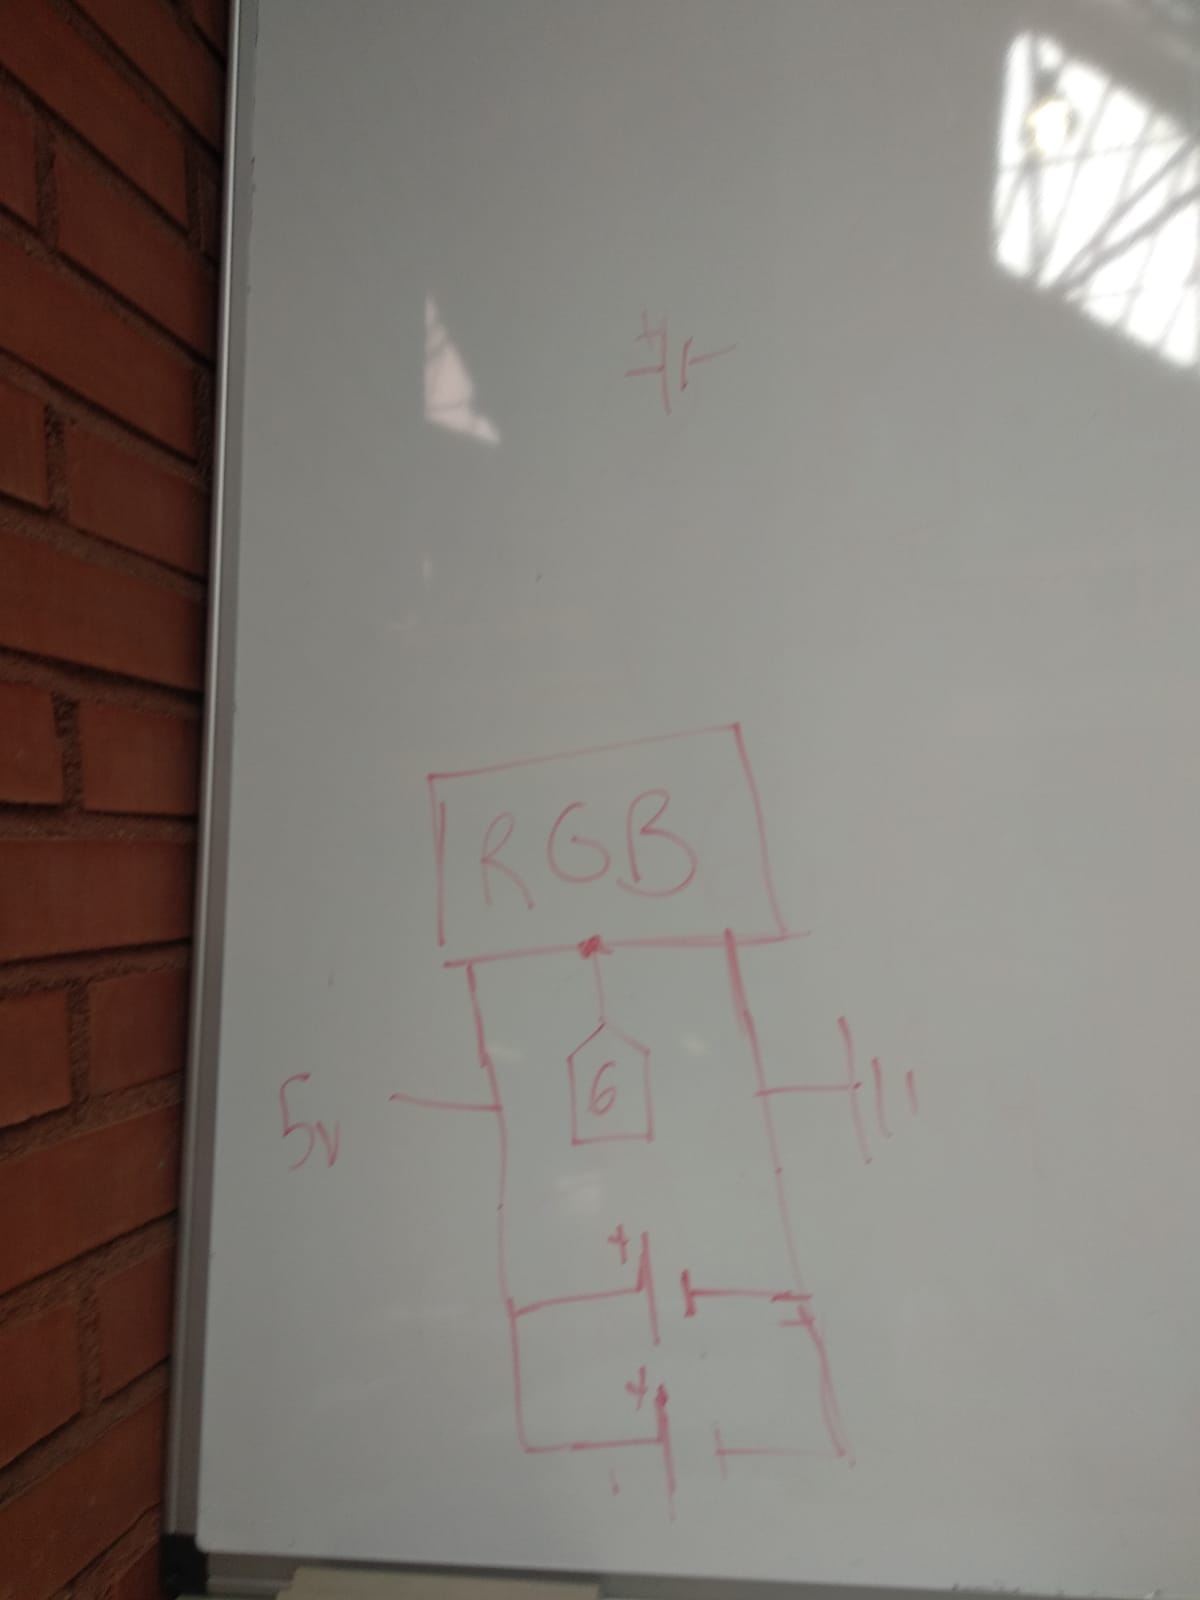 +
RGB
6
5v
+
+